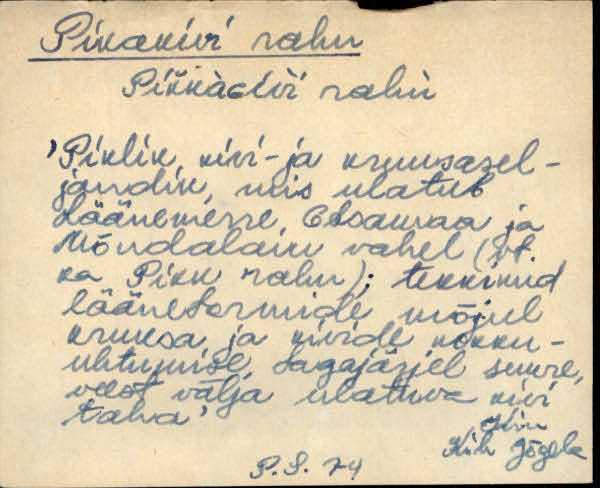 Pikakivi rahu
Pikkàɢivì rahù
'Piklik kivi- ja kruusasel-
jandik, mis ulatub
Läänemerre Elsamaa ja
Mõndalaiu vahel (vt.
ka Pikk rahu); tekkinud
läänetormide mõjul
kruusa ja kivide kokku-
uhtumise tagajärjel suure,
veest välja ulatuva kivi
taha'
Kih Jõgela
P.S. 74